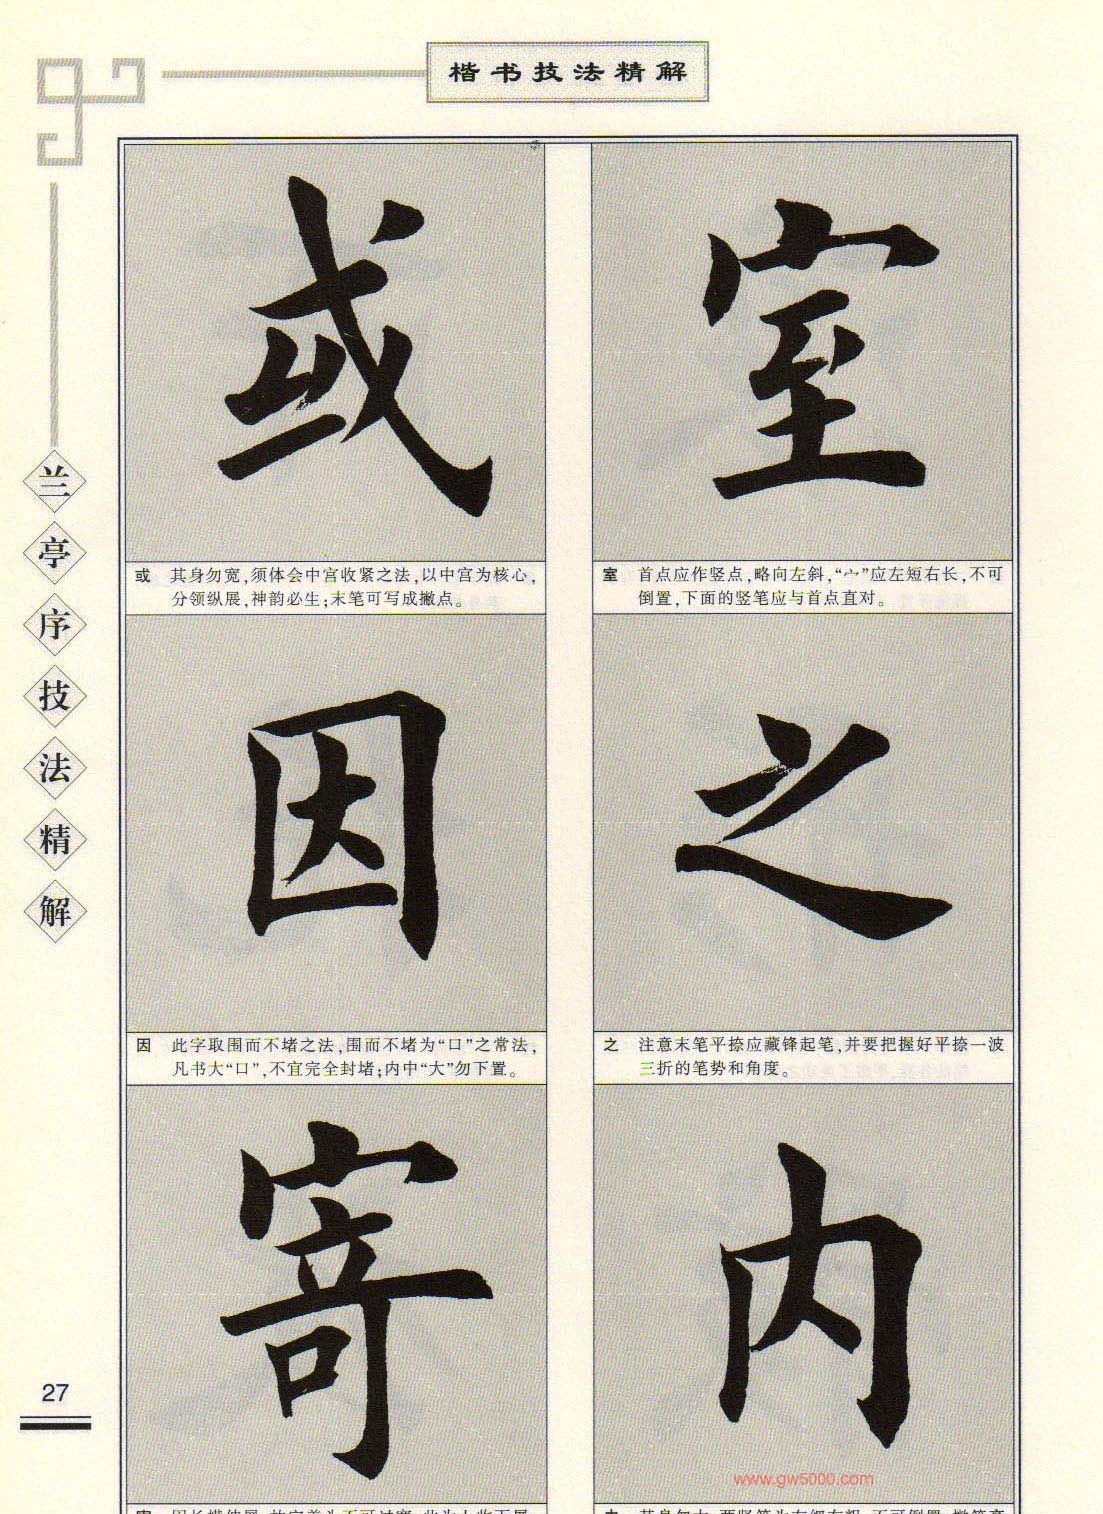 楷书技法精解
兰亭序技法精解
室
室 首点应作竖点,略向左斜,“宀”应左短右长,不可
倒置,下面的竖笔应与首点直对。
之
之 注意末笔平捺应藏锋起笔,并要把握好平捺一波
三折的笔势和角度。
内
或
或 其身勿宽,须体会中宫收紧之法,以中宫为核心,
分领纵展,神韵必生;末笔可写成撇点。
因
因 此字取围而不堵之法,围而不堵为“口”之常法,
凡书大“口”,不宜完全封堵;内中“大”勿下置。
寄
27
www.gw5000.com